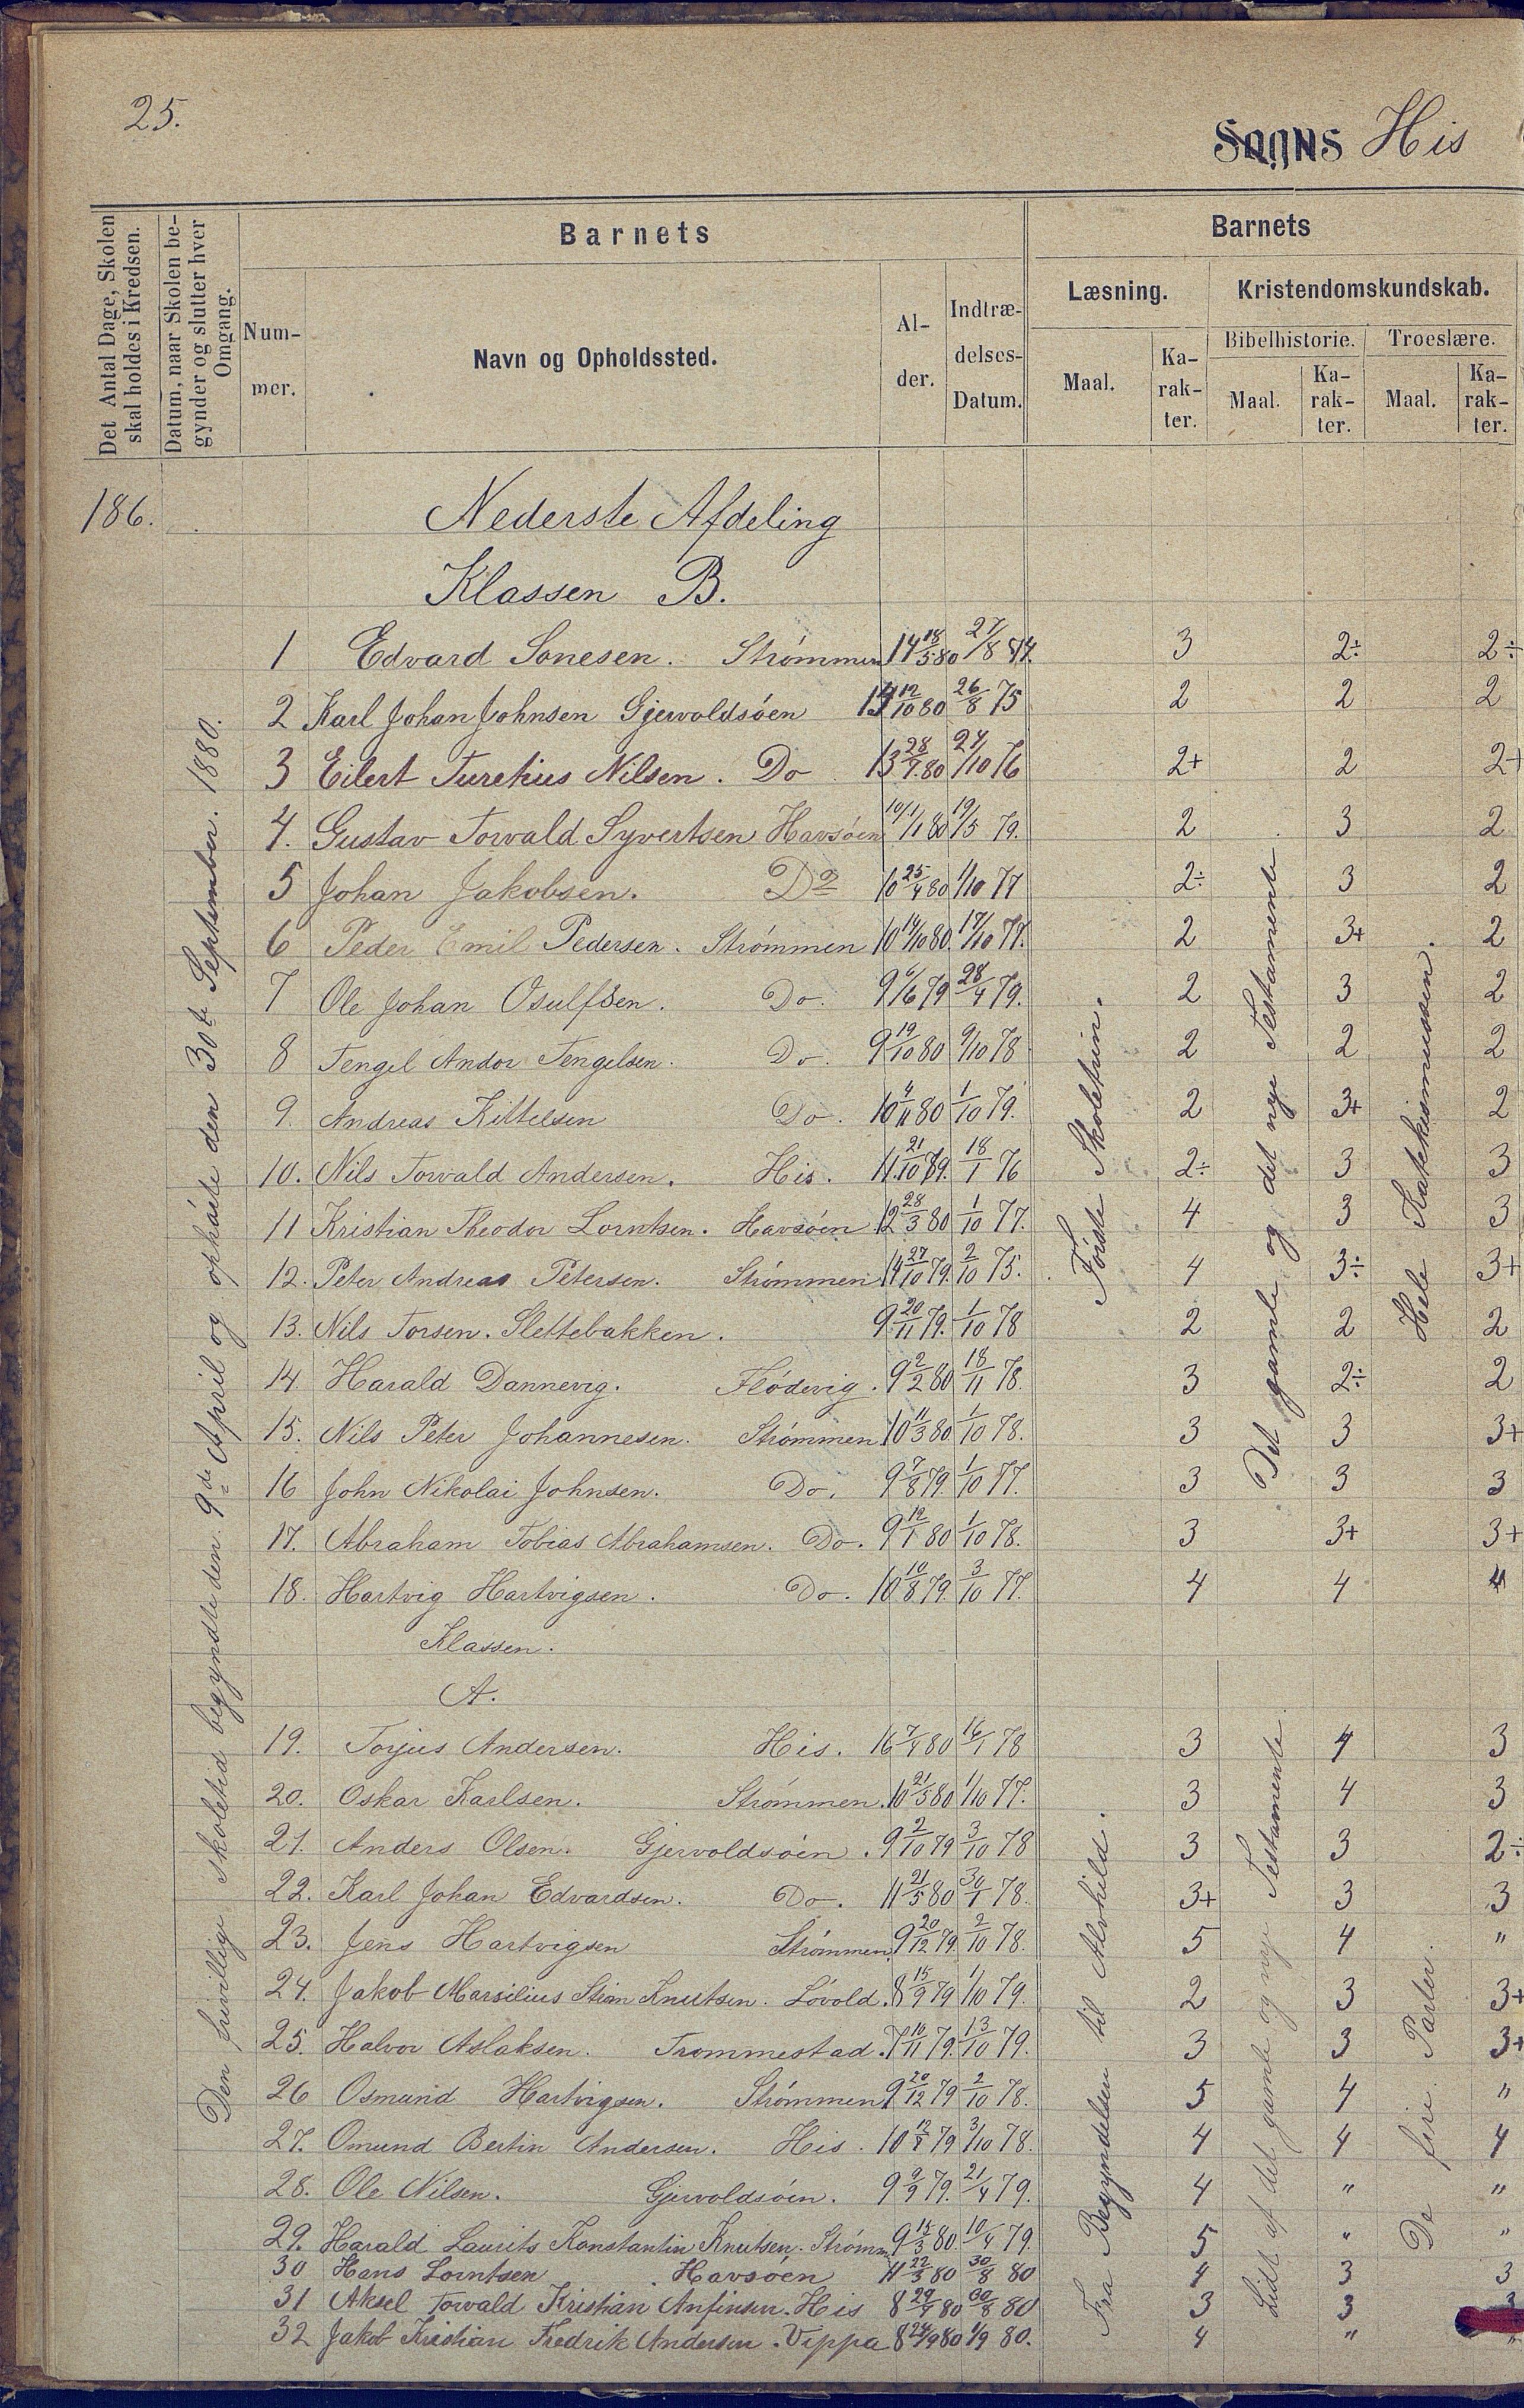 25.
Sogns His
Det Antal Dage, Skolen skal holdes i Kredsen.
Datum, naar Skolen begynder og slutter hver Omgang.
Barnets
Barnets
Nummer.
Navn og Opholdssted.
Alder.
Indtrædelses-Datum.
Læsning.
Kristendomskundskab.
Bibelhistorie. Troeslære.
Maal. Karakter. Maal. Karakter. Maal. Karakter.
186.
Nederste Afdeling
Klassen B.
Den frivillige skoletid begyndte den 9de April og ophørte den 30te September. 1880.
1 Edvard Sonesen. Strømmen 14 18/5 80 27/8 74. 3 2÷ 2÷
2 Karl Johan Johnsen Gjervoldsøen 12/10 80 26/8 75 2 2 2
3 Eilert Turetius Nilsen. Do 13 28/7. 80 24/10 76 2+ 2 2+
4. Gustav Torvald Syvertsen Havsøen 10 1/1 80 19/5 79. 2 3 2
5 Johan Jakobsen. Do 10 25/4 80 1/10 77 2÷ 3 2
6 Peder Emil Pedersen. Strømmen 10 14/10 80. 17/10 77. 2 3+ 2
7 Ole Johan Osulfsen. Do. 9 6/6 79 28/4 79. 2 3 2
8 Tengel Andor Tengelsen. Do. 9 19/10 80 9/10 78 2 2 2
9. Andreas Kittelsen Do. 10 4/11 80 1/10 79. 2 3+ 2
10. Nils Torvald Andersen. His. 11. 21/10 79. 18/1 76 2÷ 3 3
11 Kristian Theodor Lorntsen. Havsøen 12 28/3 80 1/10 77. 4 3 3
12. Peter Andreas Petersen. Strømmen 14 27/10 79. 2/10 75. 4 3÷ 3+
13. Nils Torsen. Slettebakken. 9 20/11 79. 1/10 78 2 2 2
14. Harald Dannevig. Flødevig. 9 2/2 80 18/11 78. 3 2÷ 2
15. Nils Peter Johannesen. Strømmen 10 11/3 80. 1/10 78. 3 3 3+
16 John Nikolai Johnsen. Do. 9 7/8 79. 1/10 77. 3 3 3
17. Abraham Tobias Abrahamsen. Do. 9 12/1 80 1/10 78. 3 3+ 3+
18. Hartvig Hartvigsen. Do. 10 10/8 79. 3/10 77. 4 4 4
Første Skoletrin.
Det gamle og det nye Testamente
Hele Katekismussen.
Klassen.
A.
19. Torjus Andersen. His. 16 7/4 80 16/1 78 3 4 3
20. Oskar Karlsen. Strømmen. 10 21/5 80 1/10 77. 3 4 3
21. Anders Olsen. Gjervoldsøen. 9 2/10 79 3/10 78 3 3 2÷
22. Karl Johan Edvardsen. Do. 11 21/5 80 30/1 78. 3+ 3 3
23. Jens Hartvigsen Strømmen. 9 20/12 79 2/10 78. 5 4 "
24. Jakob Marsilius Stian Knutsen. Løvold. 8 15/9 79 1/10 79. 2 3 3+
25. Halvor Aslaksen. Trommestad. 7 16/11 79. 13/10 79. 3 3 3+
26 Osmund Hartvigsen. Strømmen 9 20/12 79 2/10 78. 5 4 "
27. Omund Bertin Andersen. His. 10 12/8 79 3/10 78. 4 4 4
28. Ole Nilsen. Gjervoldsøen. 9 9/9 79. 21/4 79. 4 " "
29. Harald Laurits Konstantin Knutsen. Strømm 9 15/3 80. 10/4 79. 5 " "
30 Hans Lorntsen Havsøen 11 22/3 80 30/8 80 4 3 3
31 Aksel Torvald Kristian Anfinsen. His 8 29/4 80 30/8 80 3 3 3
32 Jakob Kristian Fredrik Andersen. Vippa 8 24/9 80 1/9 80. 4 " "
Fra Begyndelsen til Alvhild.
Lidt af det gamle og nye Testamente.
De fire Parter.